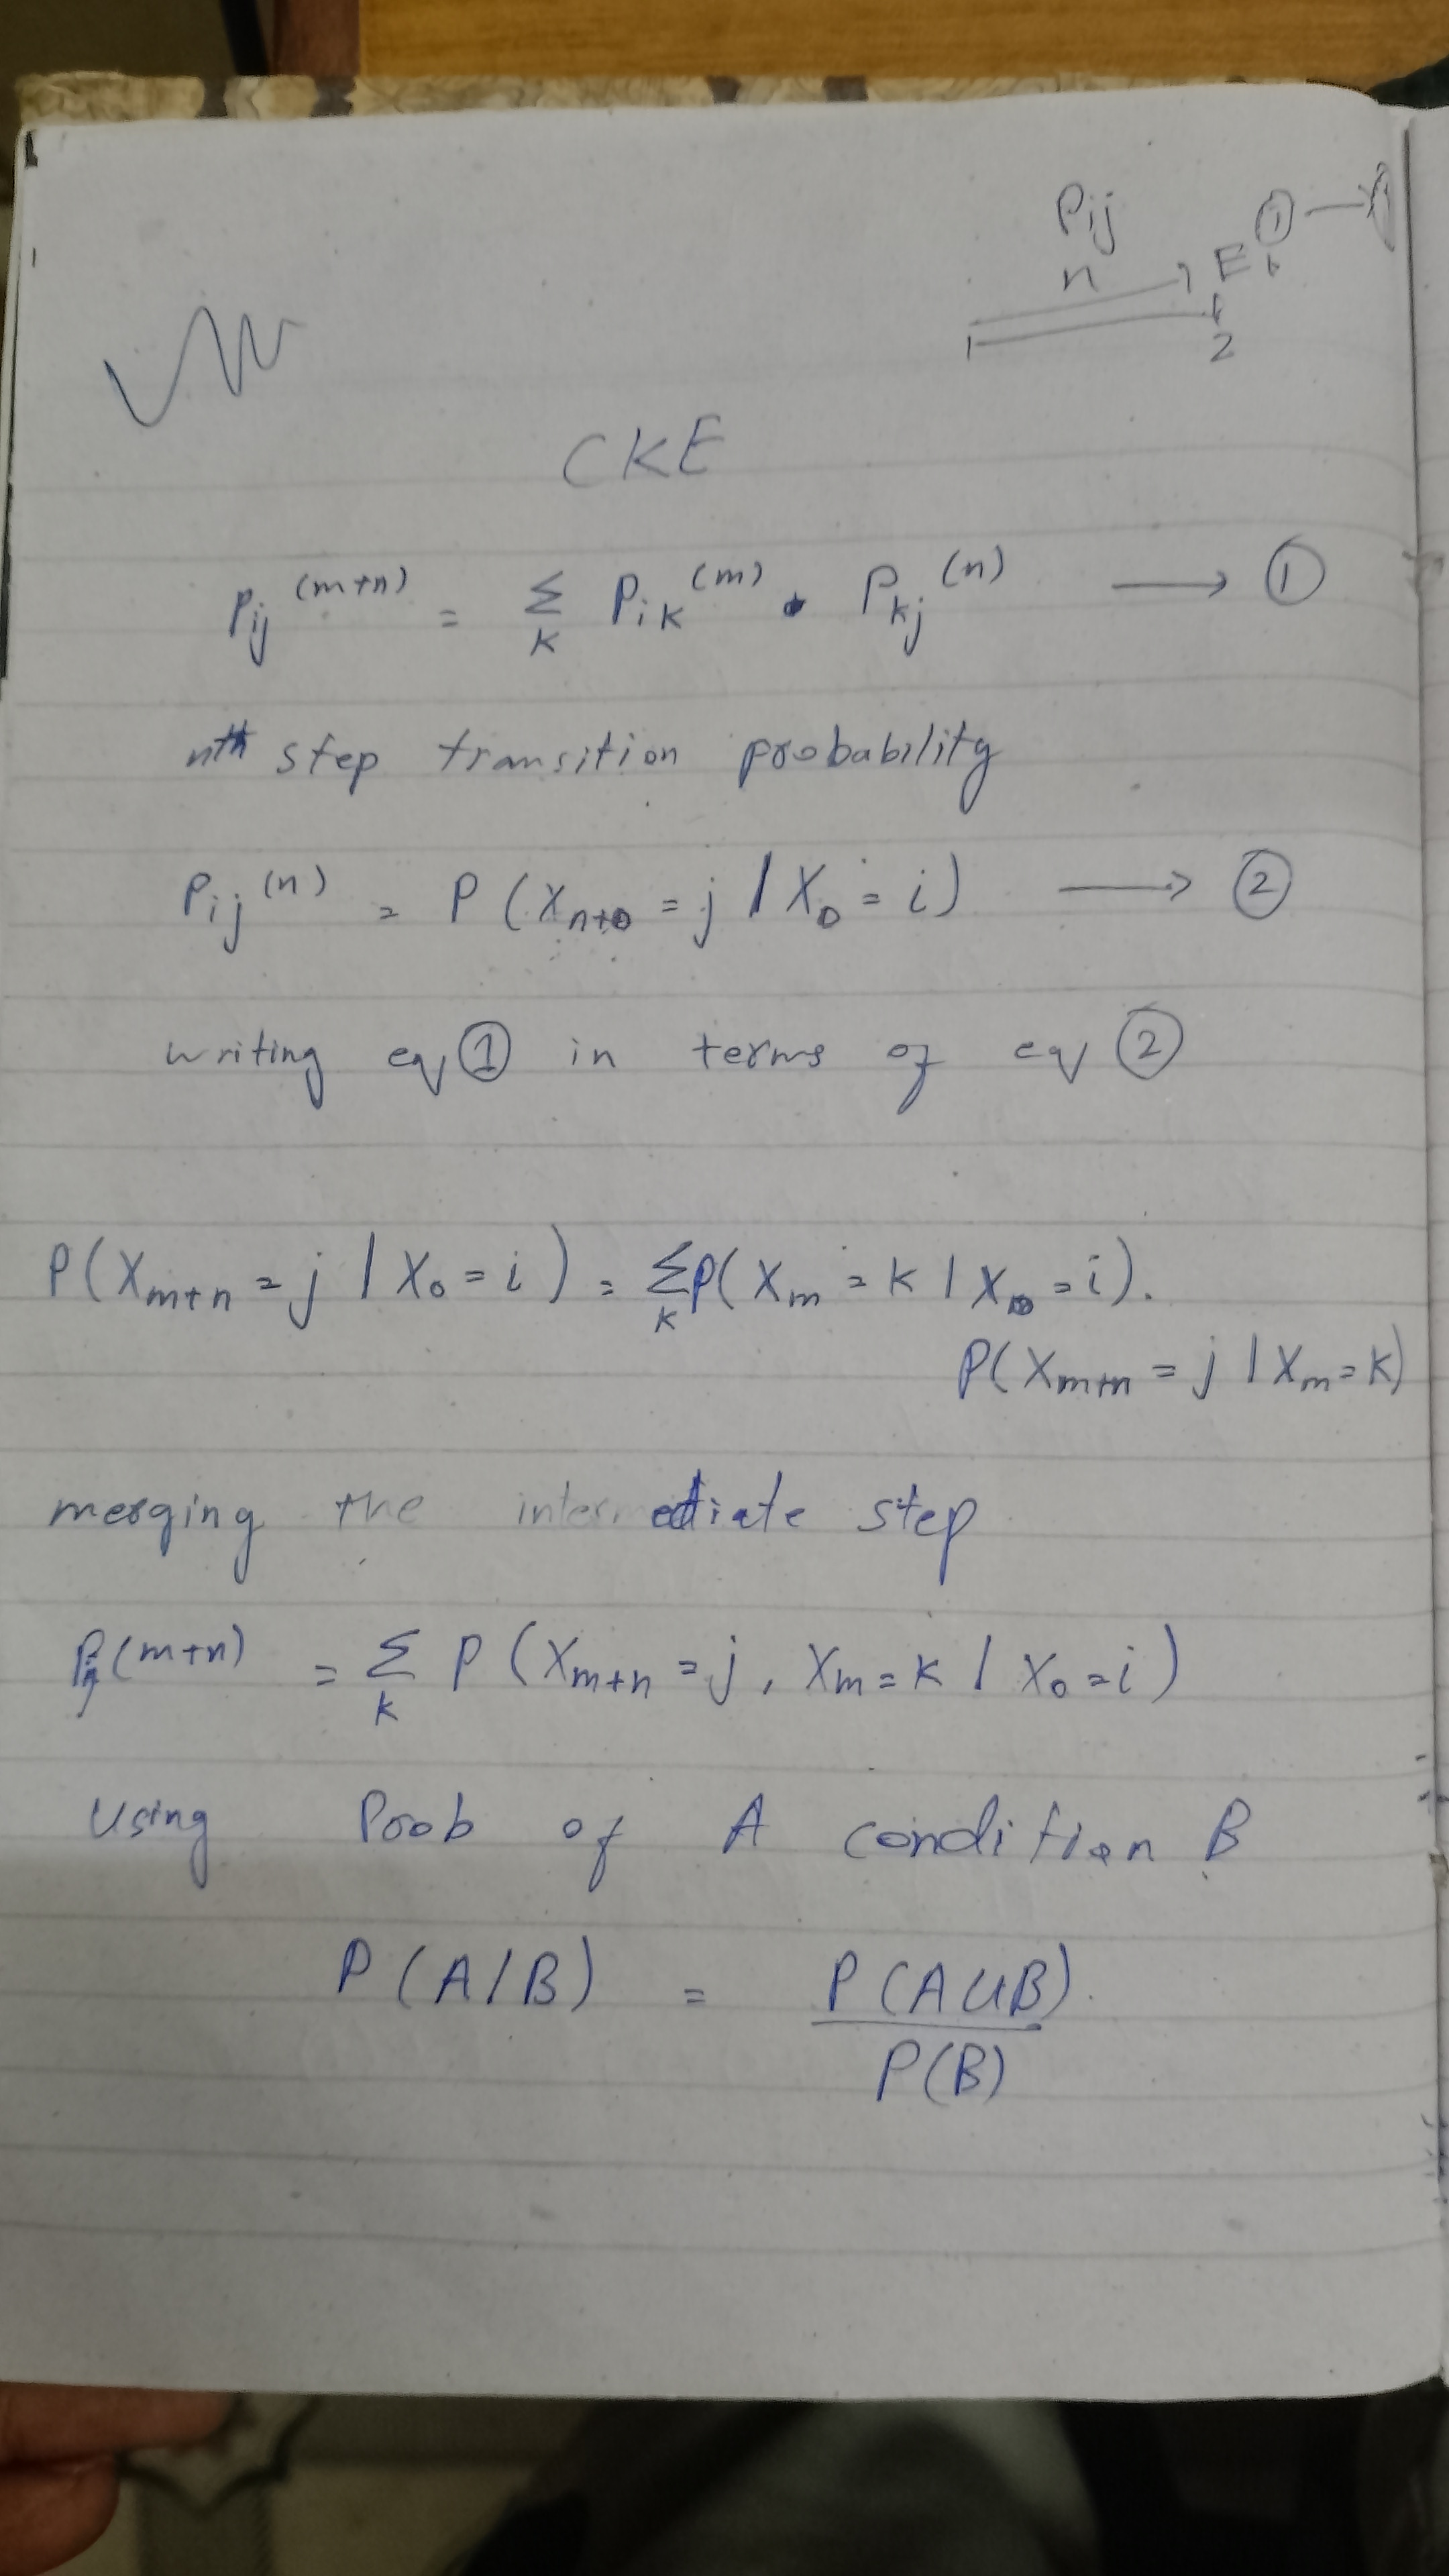 Pij
n
1
2
CKE
Pij (m+n) = Σ K Pik (m) • Pkj (n) → ①
nth step transition probability
Pij (n) = P (Xn+0 = j / X0 = i) → ②
writing eq ① in terms of eq ②
P(Xm+n = j / X0 = i) = Σ K P(Xm = K / X0 = i).
P(Xm+n = j / Xm = K)
merging the intermediate step
Pij (m+n) = Σ K P (Xm+n = j, Xm = K / X0 = i)
Using Prob of A condition B
P(A/B) = P(A∪B)
P(B)